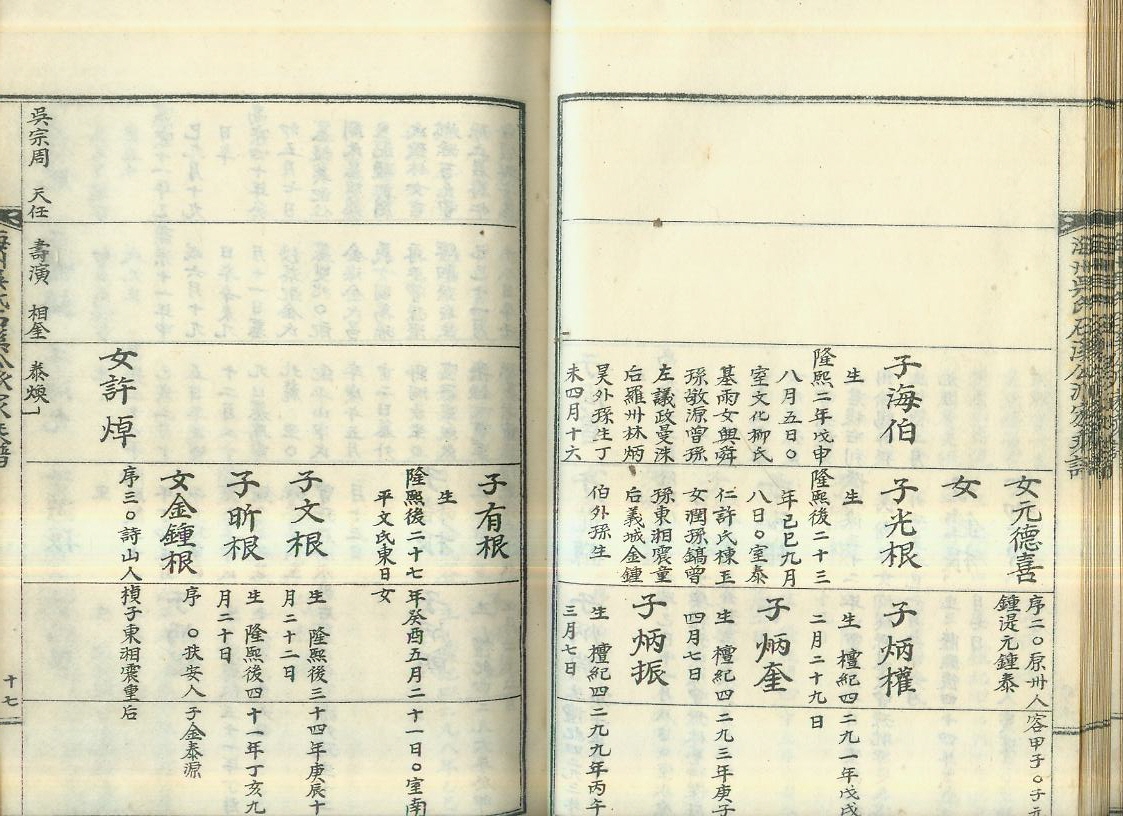 女元德喜
序二○原州人
容甲子○子元
鍾湜元鍾泰
女
子海伯
生
隆熙二年戊申
八月五日○
室文化柳氏
墓雨女與舜
孫敬源曾孫
左議政曼洙
后羅州林炳
昊外孫生丁
未四月十六
子光根
生
隆熙後二十三
年己巳九月
八日○室泰
仁許氏棟玉
女潤孫鎬曾
孫東湘震童
后義城金鍾
伯外孫生
子炳權
生 檀紀四二九一年戊戌
二月二十九日
子炳奎
生 檀紀四二九三年庚子
四月七日
子炳振
生 檀紀四二九九年丙午
三月七日
子有根
生
隆熙後二十七年癸酉五月二十一日○室南
平文氏東日女
子文根
生 隆熙後三十四年庚辰十
月二十二日
子昕根
生 隆熙後四十一年丁亥九
月二十日
女金鍾根
序 ○扶安人子金泰源
女許焯
序三○詩山人楨子東湘震童后
吳宗周 天任
壽演 相奎
泰煥
十七